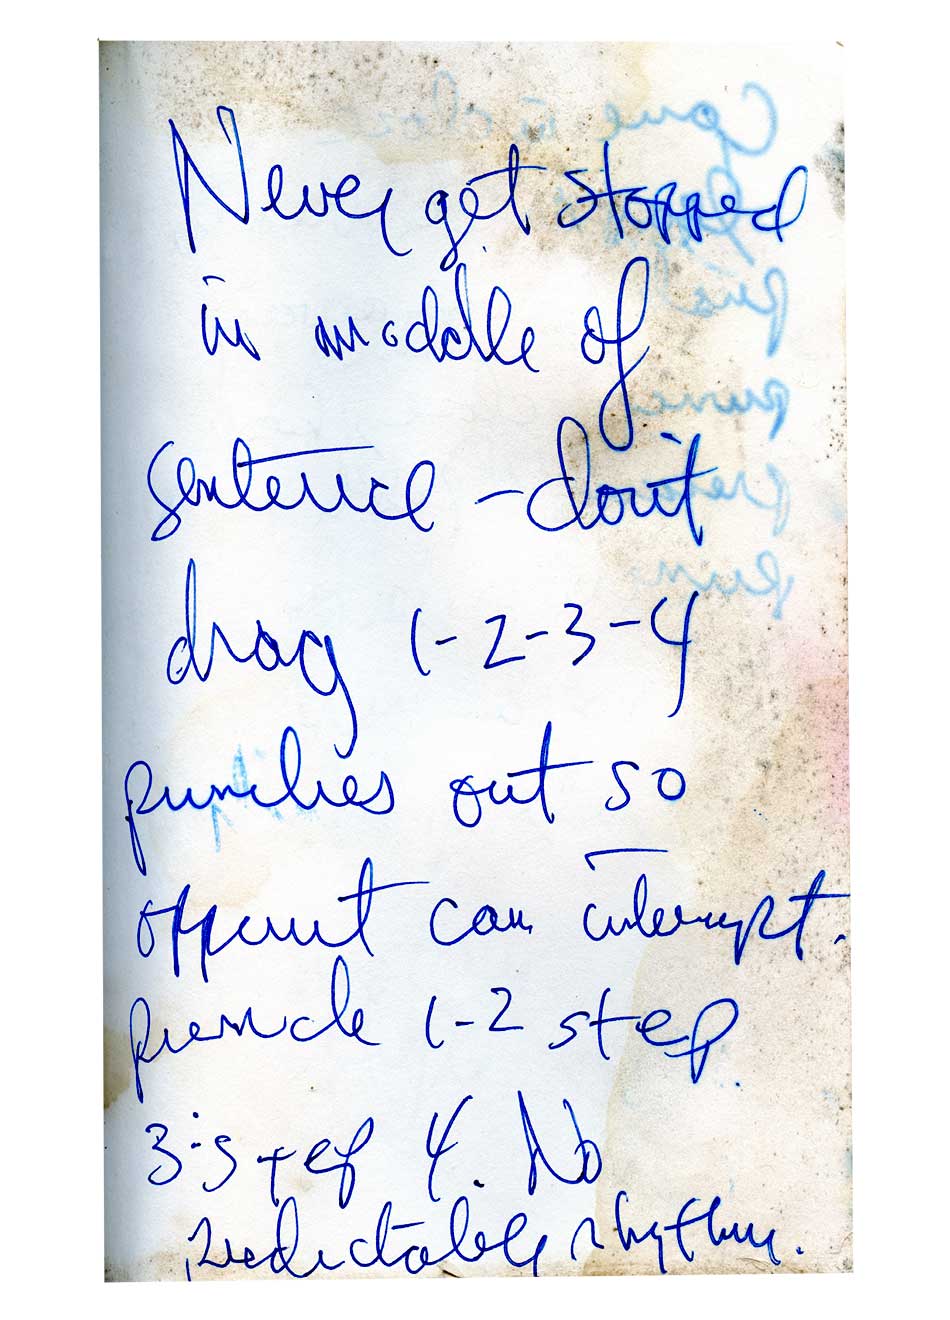 Never get stopped
in middle of
sentence - don't
drag 1-2-3-4
punches out so
opponent can interrupt.
punch 1-2 step
3-step 4. No
predictable rhythm.